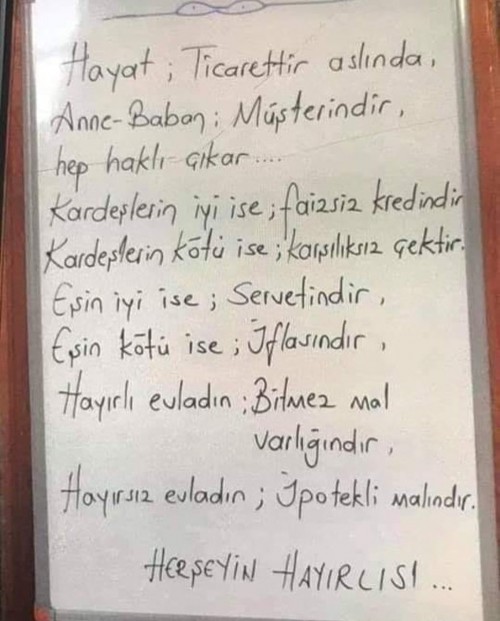 Hayat; Ticarettir aslında,
Anne-Baban; Müşterindir,
hep haklı çıkar....
Kardeşlerin iyi ise; faizsiz kredindir
Kardeşlerin kötü ise; karşılıksız çektir.
Eşin iyi ise; Servetindir,
Eşin kötü ise; İflasındır,
Hayırlı evladın; Bitmez mal
varlığındır,
Hayırsız evladın; İpotekli malındır.
HERŞEYİN HAYIRLISI...